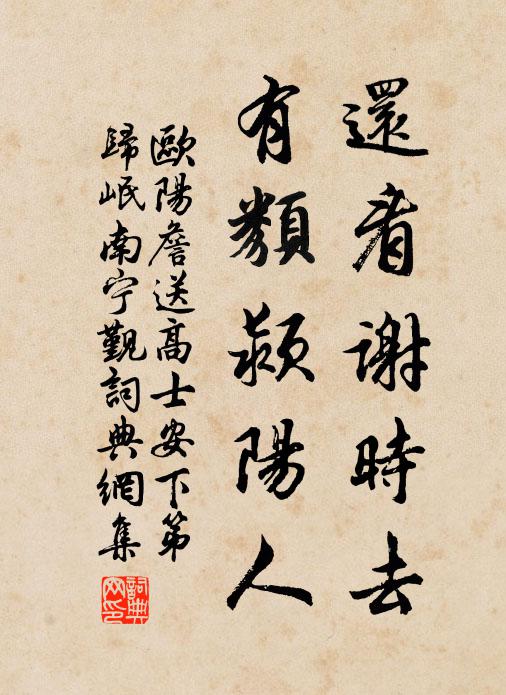 還看謝時去
有類潁陽人
歐陽詹送高士安下第
歸岷南宁觀詞典網集
詞典
网印